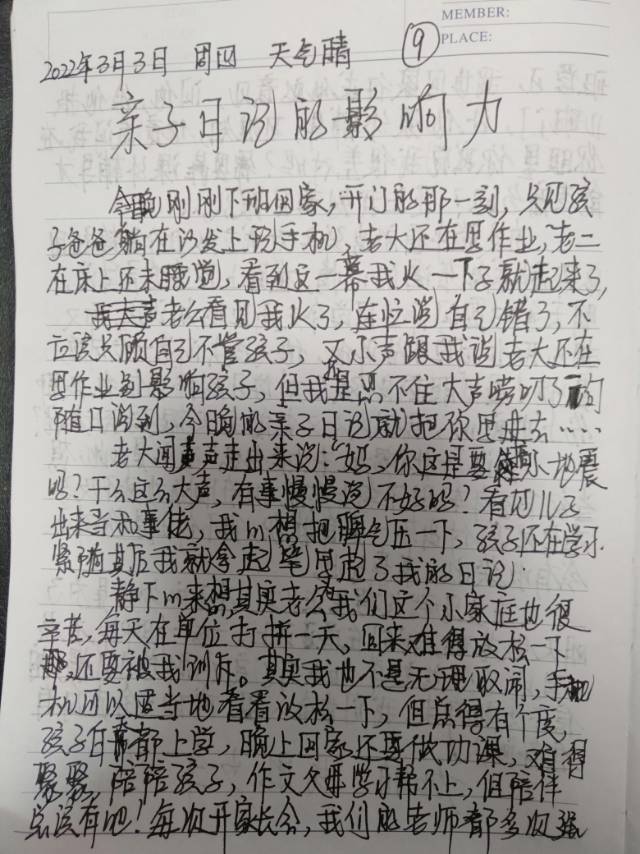 MEMBER:
PLACE:
⑨
2022年3月3日 周四 天气晴
亲子日记的影响力
今晚刚刚下班回家,开门的那一刻,只见孩
子爸爸躺在沙发上玩手机,老大还在写作业,老二
在床上还未睡觉,看到这一幕我火一下子就起来了,
老公看见我火了,连忙说自己错了,不
应该只顾自己不管孩子,又小声跟我说老大还在
写作业别影响孩子,但我是忍不住大声唠叨了一句
随口说到,今晚的亲子日记就把你写进去……
老大闻声走出来说:“妈,你这是要 地震
吗?干么这么大声,有事慢慢说不好吗?看把儿子
出来当和事佬,我心想把脾气压一下,孩子还在学习
紧随其后我就拿起笔写起了我的日记.
静下心来想其实老公为我们这个小家庭也很
辛苦,每天在单位打拼一天,回来难得放松一下
那,还要被我训斥。其实我也不是无理取闹,手机
可以适当地看看放松一下,但总得有个度,
孩子白天都上学,晚上回家还要做功课,难得
聚聚,陪陪孩子,作文 学习帮不上,但陪伴
总该有吧!每次开家长会,我们的老师都多次强